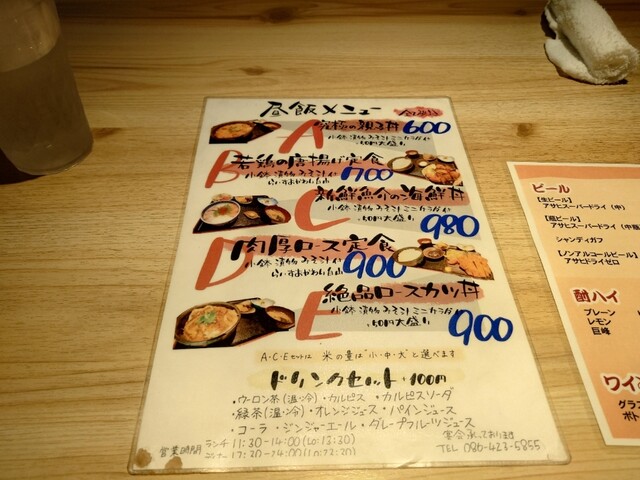 昼飯メニュー
A 究極の親子丼 600
小鉢 漬物 みそ汁 ミニカラダイ
50円大盛り
B 若鶏の唐揚げ定食
小鉢 漬物 みそ汁 700
C 新鮮魚介の海鮮丼
小鉢 漬物 みそ汁 ミニカラダイ
50円大盛り 980
D 肉厚ロース定食
小鉢 漬物 みそ汁 900
E 絶品ロースカツ丼
小鉢 漬物 みそ汁 ミニカラダイ
50円大盛り 900
A・C・Eセットは 米の量は"小・中・大"と選べます
ドリンクセット・100円
・ウーロン茶(温・冷)・カルピス ・カルピスソーダ
・緑茶(温・冷)・オレンジジュース・パインジュース
・コーラ・ジンジャーエール・グレープフルーツジュース
営業時間 ランチ 11:30-14:00 (Lo:13:30)
宴会承っております
TEL 086-423-5855
ビール
【生ビール】
アサヒスーパードライ(中)
【瓶ビール】
アサヒスーパードライ(中瓶
シャンディガフ
【ノンアルコールビール】
アサヒドライゼロ
酎ハイ
プレーン
レモン
巨峰
ワイン
グラ
ボト